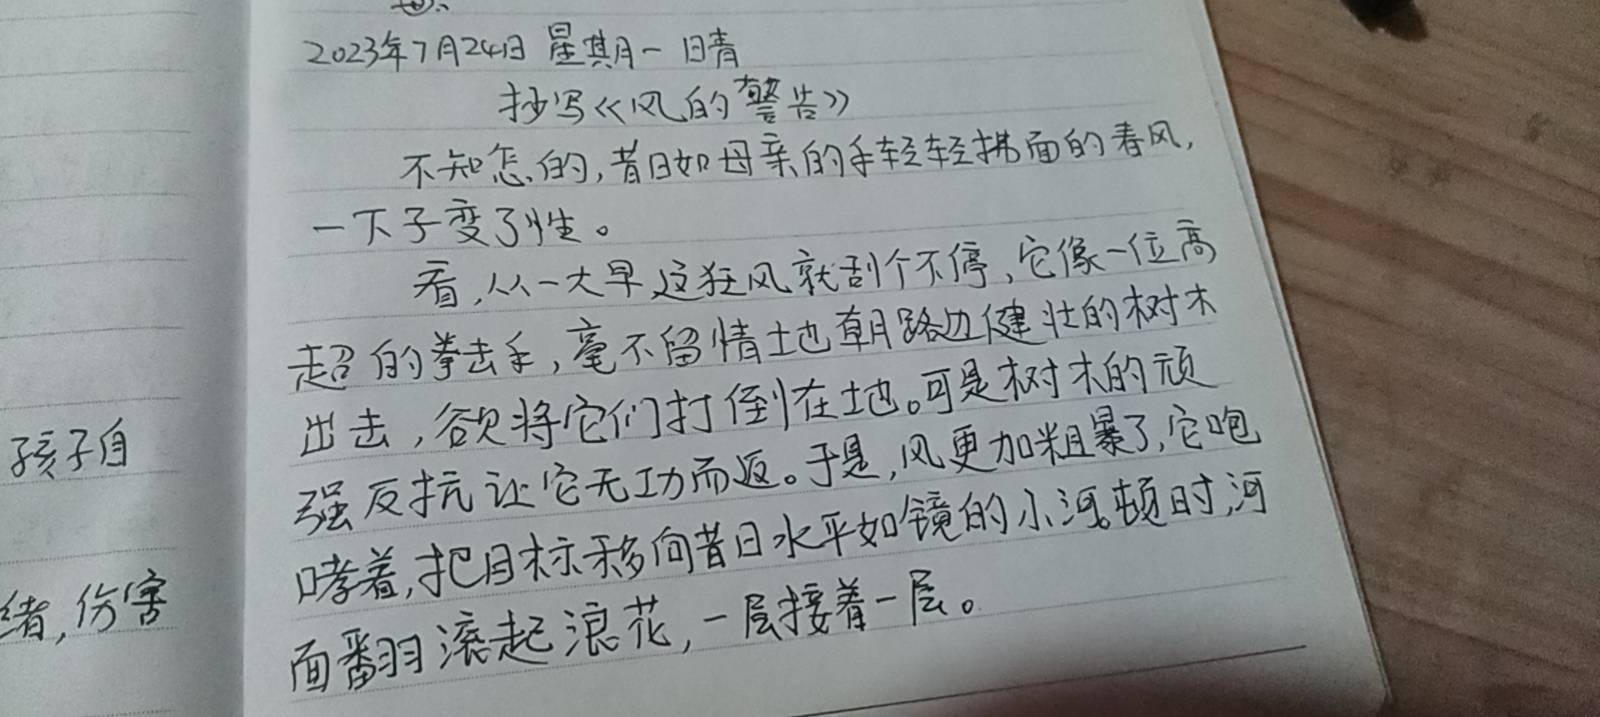 2023年7月24日 星期一 晴
抄写《风的警告》
不知怎的,昔日如母亲的手轻轻拂面的春风,
一下子变了性。
看,从一大早这狂风就刮个不停,它像一位高
超的拳击手,毫不留情地朝路边健壮的树木
出击,欲将它们打倒在地。可是树木的顽
强反抗让它无功而返。于是,风更加粗暴了,它咆
哮着,把目标移向昔日水平如镜的小河。顿时,河
面翻滚起浪花,一层接着一层。
孩子自
绪,伤害